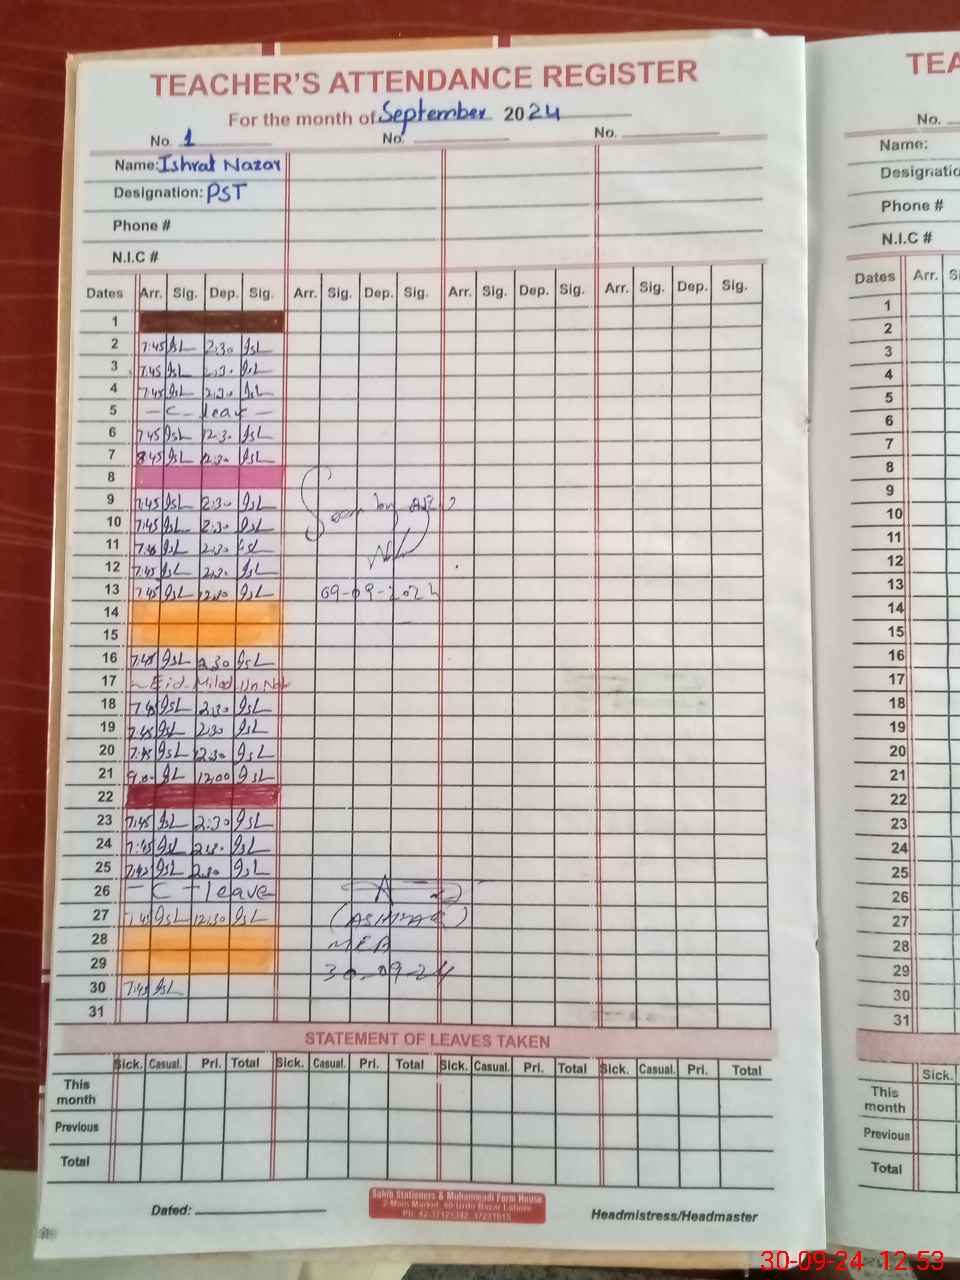 TEACHER'S ATTENDANCE REGISTER
For the month of September 2024
No. 1 No. No.
Name: Ishrat Nazar
Designation: PST
Phone #
N.I.C #
Dates Arr. Sig. Dep. Sig. Arr. Sig. Dep. Sig. Arr. Sig. Dep. Sig. Arr. Sig. Dep. Sig.
1
2 7:45 2:30
3 7:45 2:30
4 7:45 2:30
5 - C - leave -
6 7:45 12:30
7 8:45 12:30
8
9 7:45 2:30 Seen by
10 7:45 2:30
11 7:45 2:30
12 7:45 2:30
13 7:45 12:30 09-09-2024
14
15
16 7:45 2:30
17 - Eid Milad Un Nabi
18 7:45 2:30
19 7:45 2:30
20 7:45 12:30
21 9:00 12:00
22
23 7:45 2:30
24 7:45 2:30
25 7:45 2:30
26 - C - leave
27 7:45 12:30
28 MEA
29 30-09-24
30 7:45
31
STATEMENT OF LEAVES TAKEN
Sick. Casual. Pri. Total Sick. Casual. Pri. Total Sick. Casual. Pri. Total Sick. Casual. Pri. Total
This month
Previous
Total
Dated:
Sahib Stationers & Muhammadi Form House
2-Main Market, 60-Urdu Bazar Lahore
Headmistress/Headmaster
TEA
No.
Name:
Designatio
Phone #
N.I.C #
Dates Arr. Si
1
2
3
4
5
6
7
8
9
10
11
12
13
14
15
16
17
18
19
20
21
22
23
24
25
26
27
28
29
30
31
Sick.
This month
Previous
Total
30-09-24 12:53